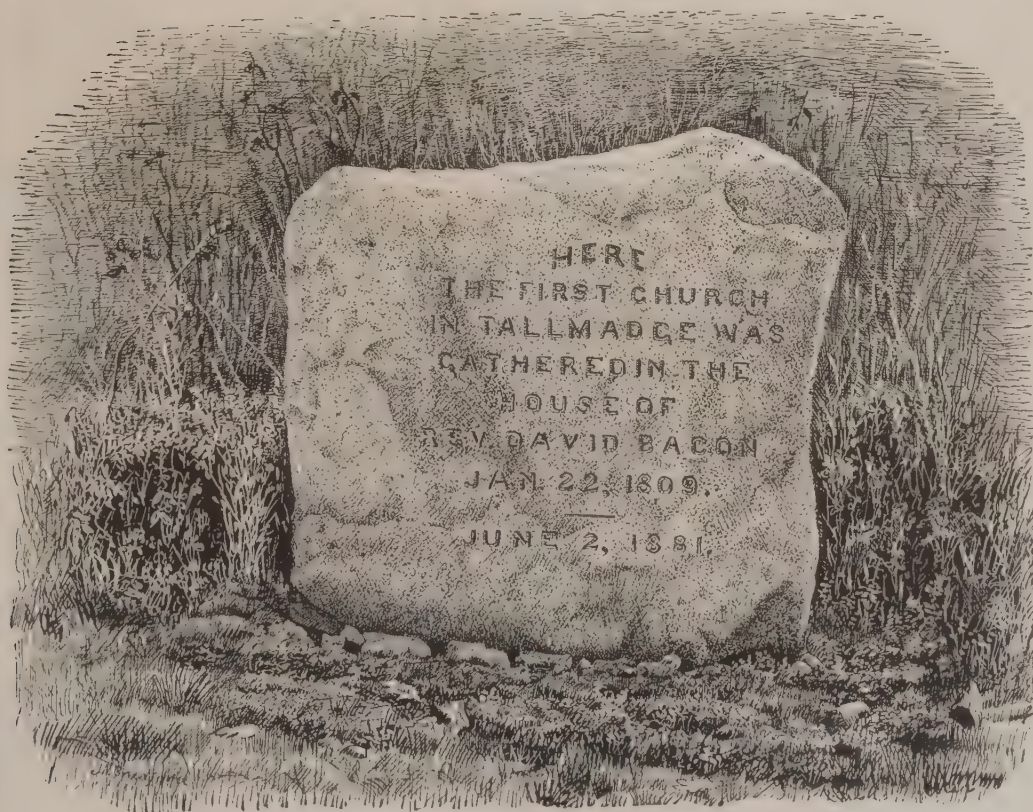 HERE
THE FIRST CHURCH
IN TALLMADGE WAS
GATHERED IN THE
HOUSE OF
REV DAVID BACON
JAN 22, 1809.
JUNE 2, 1881.